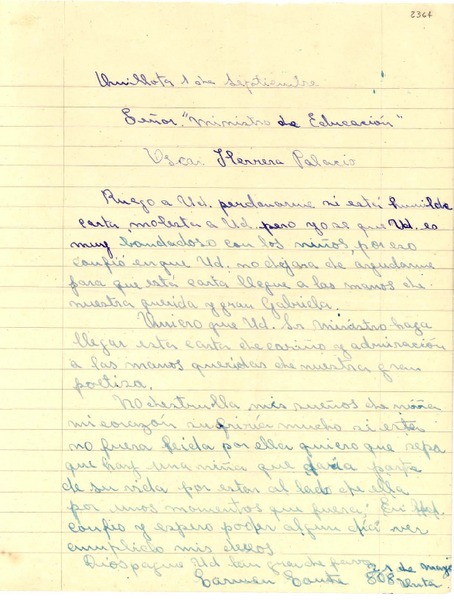 2364
Quillota 1 de Septiembre
Señor "Ministro de Educación"
Oscar Herrera Palacio
Ruego a Ud. perdonarme si está humilde
carta molesta a Ud. pero yo se que Ud. es
muy bondadoso con los niños, por eso
confió en que Ud. no dejara de ayudarme
para que está carta llegue a las manos de
nuestra querida y gran Gabriela.
Quiero que Ud. Sr Ministro haga
llegar esta carta de cariño y admiración
a las manos queridas de nuestra gran
poetiza.
No destrulla mis sueños de niña
mi corazón sufriría mucho si esta
no fuera leida por ella quiero que sepa
que hay una niña que daria parte
de su vida por estar al lado de ella
por unos momentos que fuera; En Ud.
confio y espero poder algun dias ver
cumplido mis deseos
Dios pague Ud tan grande favor
21 de mayo
Carmen 808